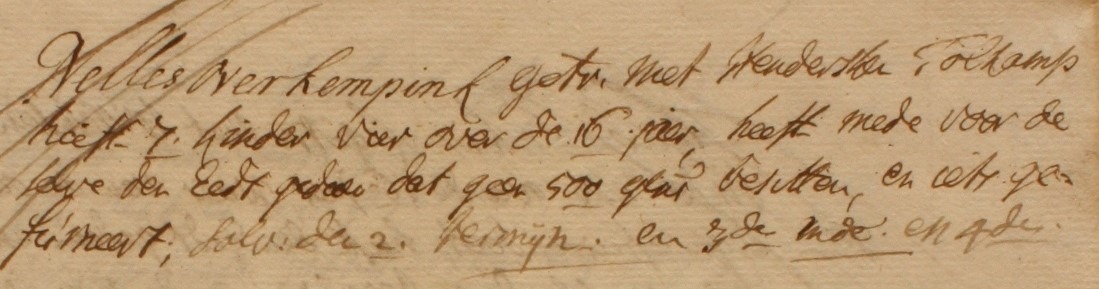 Nelles Overkempink getr. met Hendersken Tolkamp
heeft 7. kinder vier over de 16 jaer, heeft mede voor de
sijne den Eedt gedaen dat geen 500 glns besitten, en ietr. ge=
firmeert, solv. den 2. termijn. en 3de mde. en 4de.